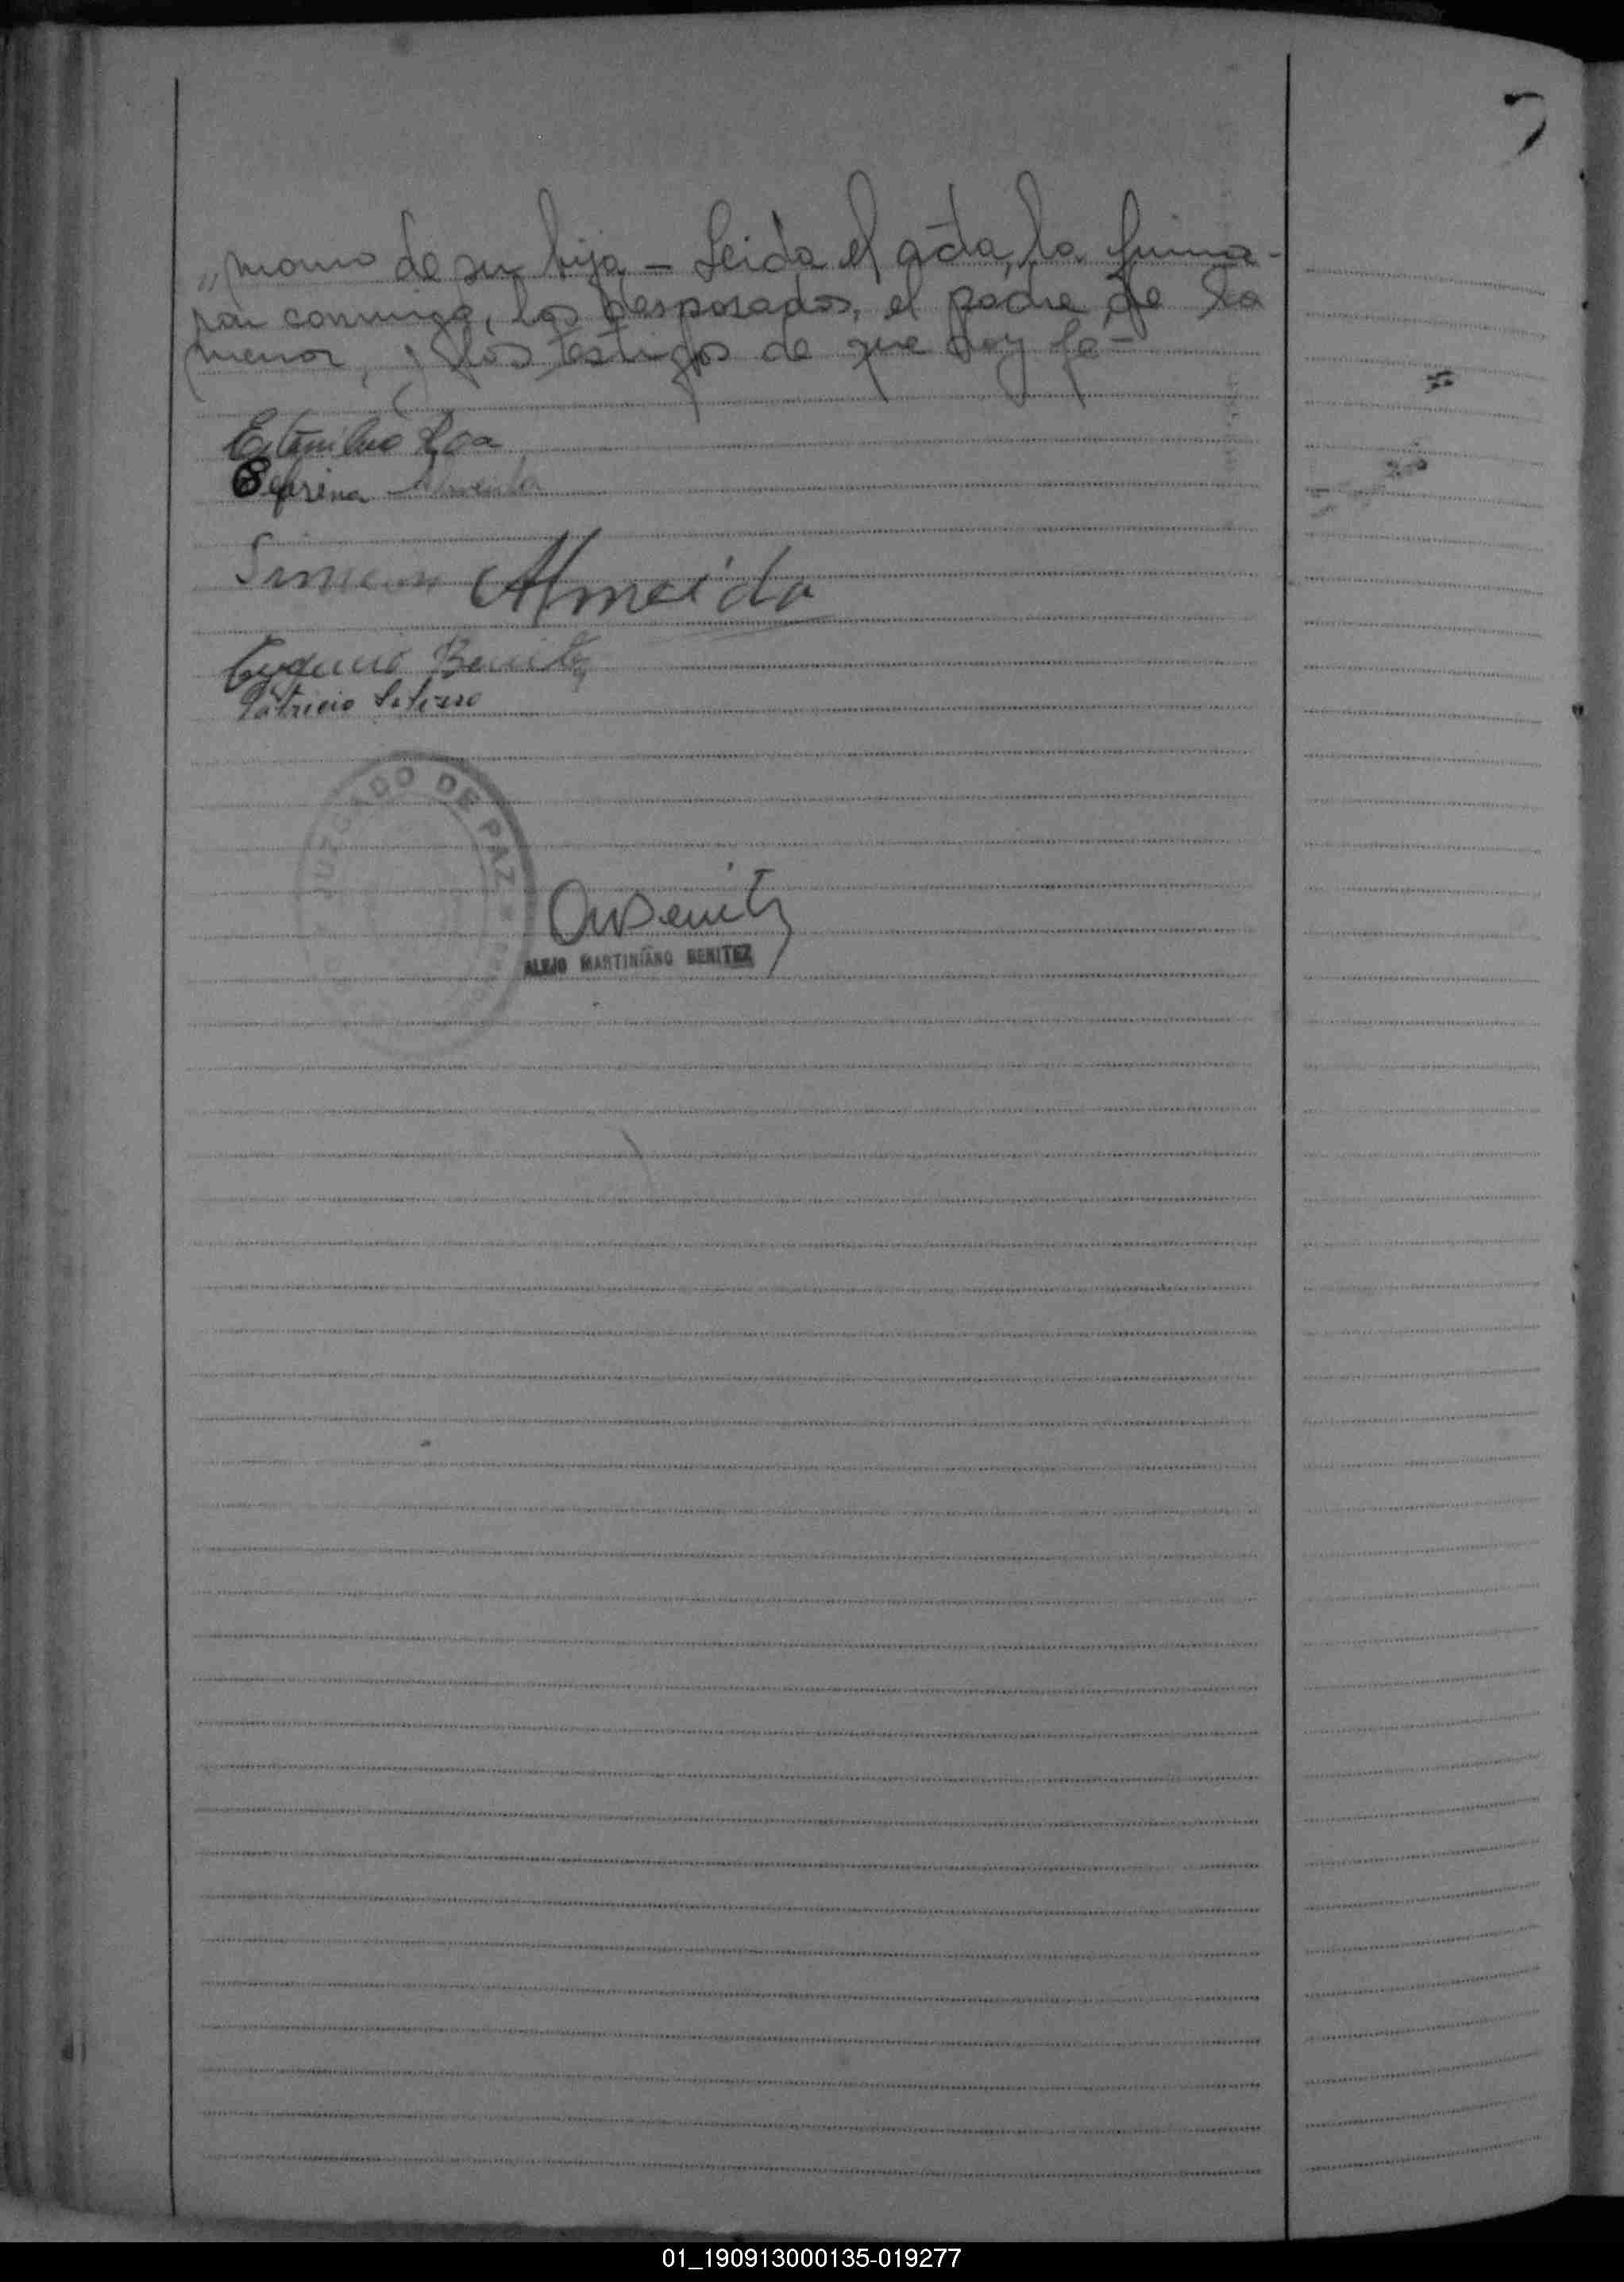 "monio de su hija - Leida el acta, la firma-
ron conmigo, los desposados, el padre de la
menor, y los testigos de que doy fe-
Estanilao Roa
Seferina Almeida
Simeon Almeida
Benitez
Patricio
JUZGADO DE PAZ
AMBenitz
ALEJO MARTINIANO BENITEZ
01_190913000135-019277